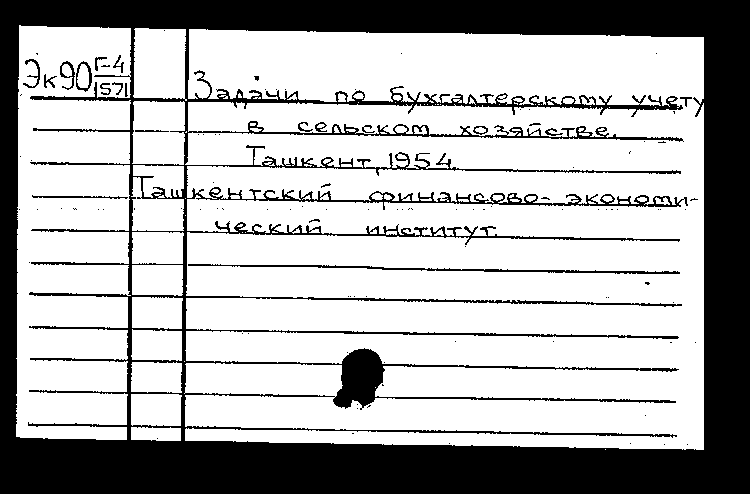 Эк90 Г-4
1571
Задачи по бухгалтерскому учету
в сельском хозяйстве.
Ташкент, 1954.
Ташкентский финансово-экономи-
ческий институт.